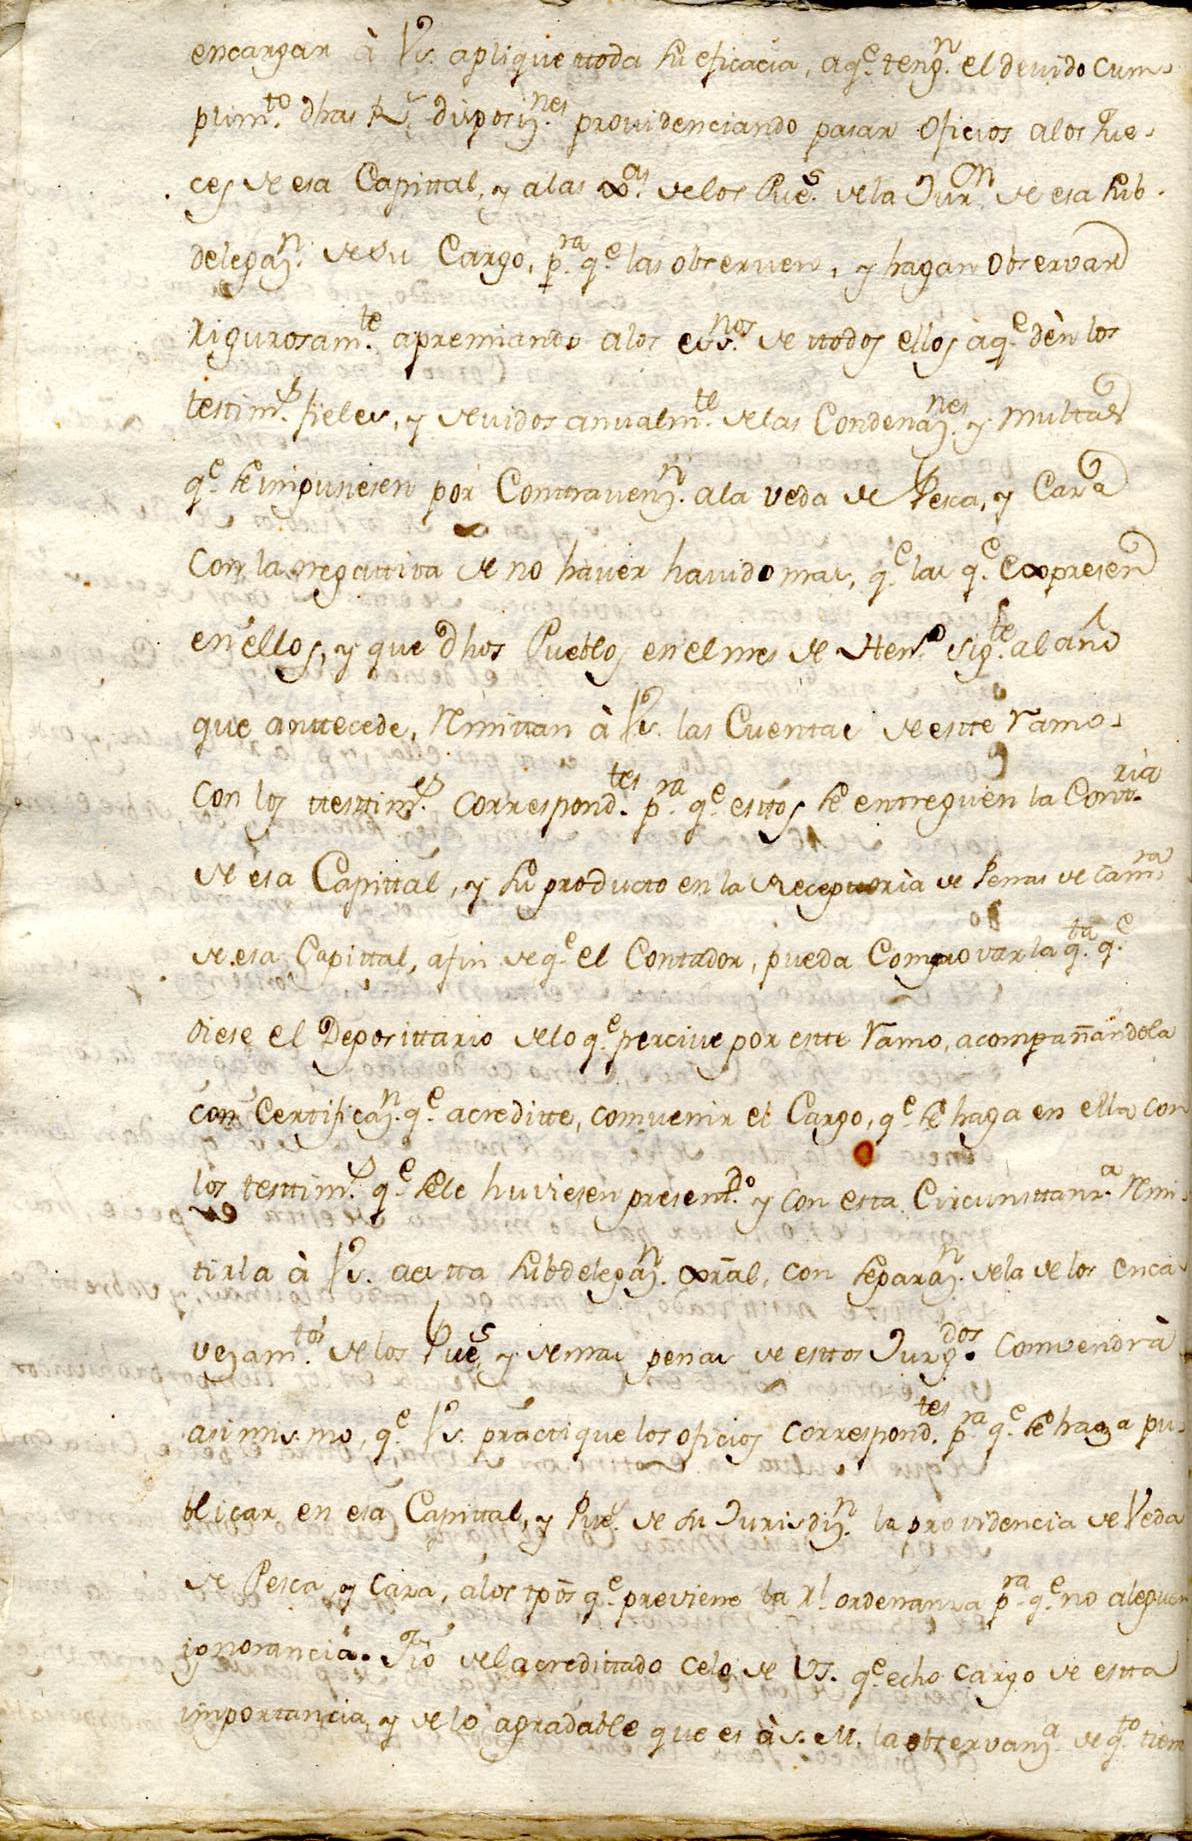 encargar à VS. aplique ttoda su eficacia, aq.^e teng.^n el devido cum-
plim.^to dhas R.^s disposiz.^nes providenciando pasar oficios alos Jue-
ces de esa Capittal, y alas de los Pue.^s de la Jur.^on de esa Sub-
delegaz.^n de su Cargo, p.^ra q.^e las observen, y hagan observar
rigurosam.^te apremiando alos ess.^nos de ttodos ellos àq.^e dèn los
testim.^s fieles, y devidos anualm.^te delas Condenaz.^nes y multtas
q.^e se impusiesen por Conttravenz.^n ala veda de Pesca, y Caza
con la negattiva de no haver havido mas, q.^e las q.^e expresen
en ellos, y que dhos Pueblos en el mes de Hen.^o sig.^te al año
que anttecede, Remittan à VS. las Cuentas de estte ramo
con los ttesttim.^s correspond.^tes p.^ra q.^e esttos se entreguen la Contt.^ria
de esa Capittal, y su producto en la Receptoría de Penas de Cam.^ra
de esa Capittal, afin de q.^e el Contador, pueda Comprovar la q.^ta q.^e
diese el Deposittario delo q.^e percive por estte ramo, acompañandola
con Certificaz.^n q.^e acreditte, comvenir el Cargo, q.^e se haga en ella con
los testtim.^s q.^e sele huviesen present.^do y con esta Circunsttanz.^a Remi-
tirla à VS. a estta Subdelegaz.^n gral, con separaz.^n dela de los enca-
vezam.^tos de los Pue.^s y demas penas de esttos Juzg.^dos Comvendrà
asimismo, q.^e VS. practique los oficios correspond.^tes p.^ra q.^e se haga pu-
blicar en esa Capittal, y Pue.^s de su Jurisdiz.^n la providencia de Veda
de Pesca, y Caza, alos tpõs q.^e previene la R.^l ordenanza p.^ra q.^e no aleguen
ignorancia. Fio del acredittado celo de VS. q.^e echo cargo de estta
importancia, y de lo agradable que es à S. M. la observanz.^a de q.^to tiene